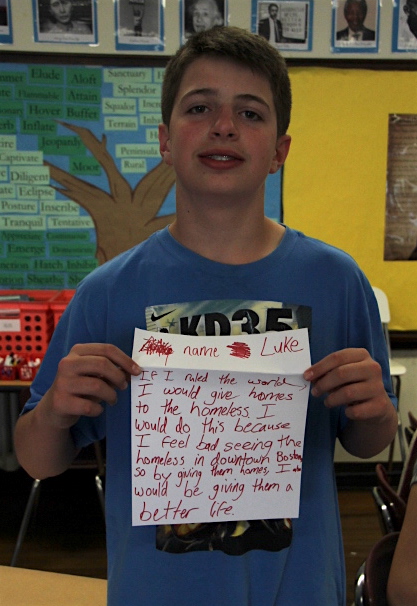 Summer Elude Aloft
Flammable Hatch Attain
Hover Buffer
Inflate
Jeopardy
Moor
Captivate
Diligent
Eclipse
Posture Inscribe
Tranquil Tentative
Emerge
Hatch Inhabit
Sheath
Sanctuary
Splendor
Squalor
Terrain
Peninsula
Rural
KD35
name Luke
If I ruled the world
I would give homes
to the homeless. I
would do this because
I feel bad seeing the
homeless in downtown Boston
so by giving them homes, I
would be giving them a
better life.